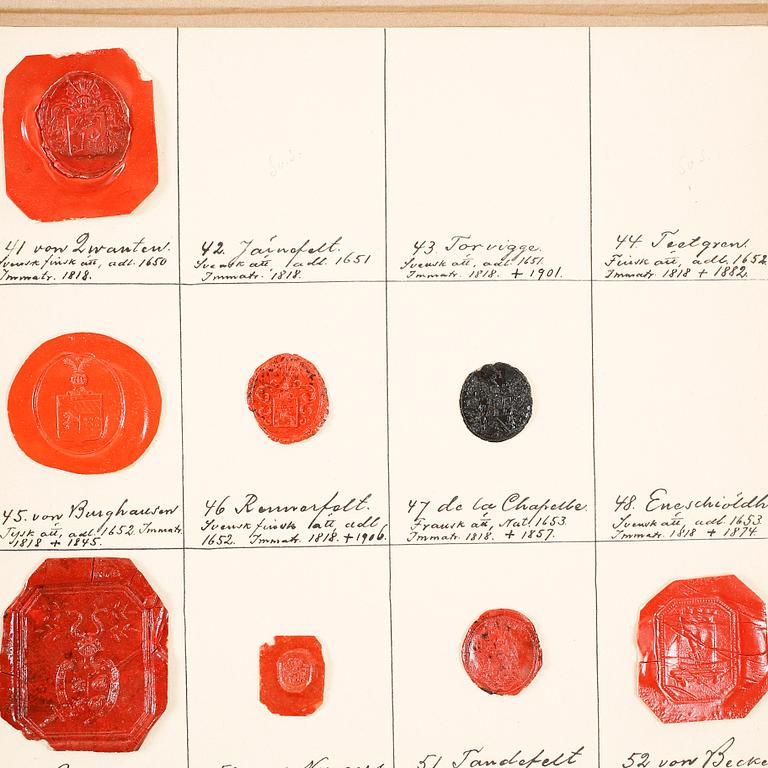 41 von Qwanten.
Svensk finsk ätt, adl. 1650
Immatr. 1818.
42. Järnefelt.
Svensk ätt, adl. 1651
Immatr. 1818.
43 Torvigge.
Svensk ätt, adl. 1651.
Immatr. 1818. + 1901.
44. Teetgren.
Finsk ätt, adl. 1652
Immatr. 1818 + 1882.
45. von Burghausen
Tysk ätt, adl. 1652. Immatr.
1818 + 1845.
46 Rennerfelt.
Svensk finsk ätt, adl.
1652. Immatr. 1818. + 1906.
47 de la Chapelle.
Fransk ätt, Nat. 1653.
Immatr. 1818. + 1857.
48. Eneschiöldh
Svensk ätt, adl. 1653
Immatr. 1818 + 1874.
51 Tandefelt
52 von Becke